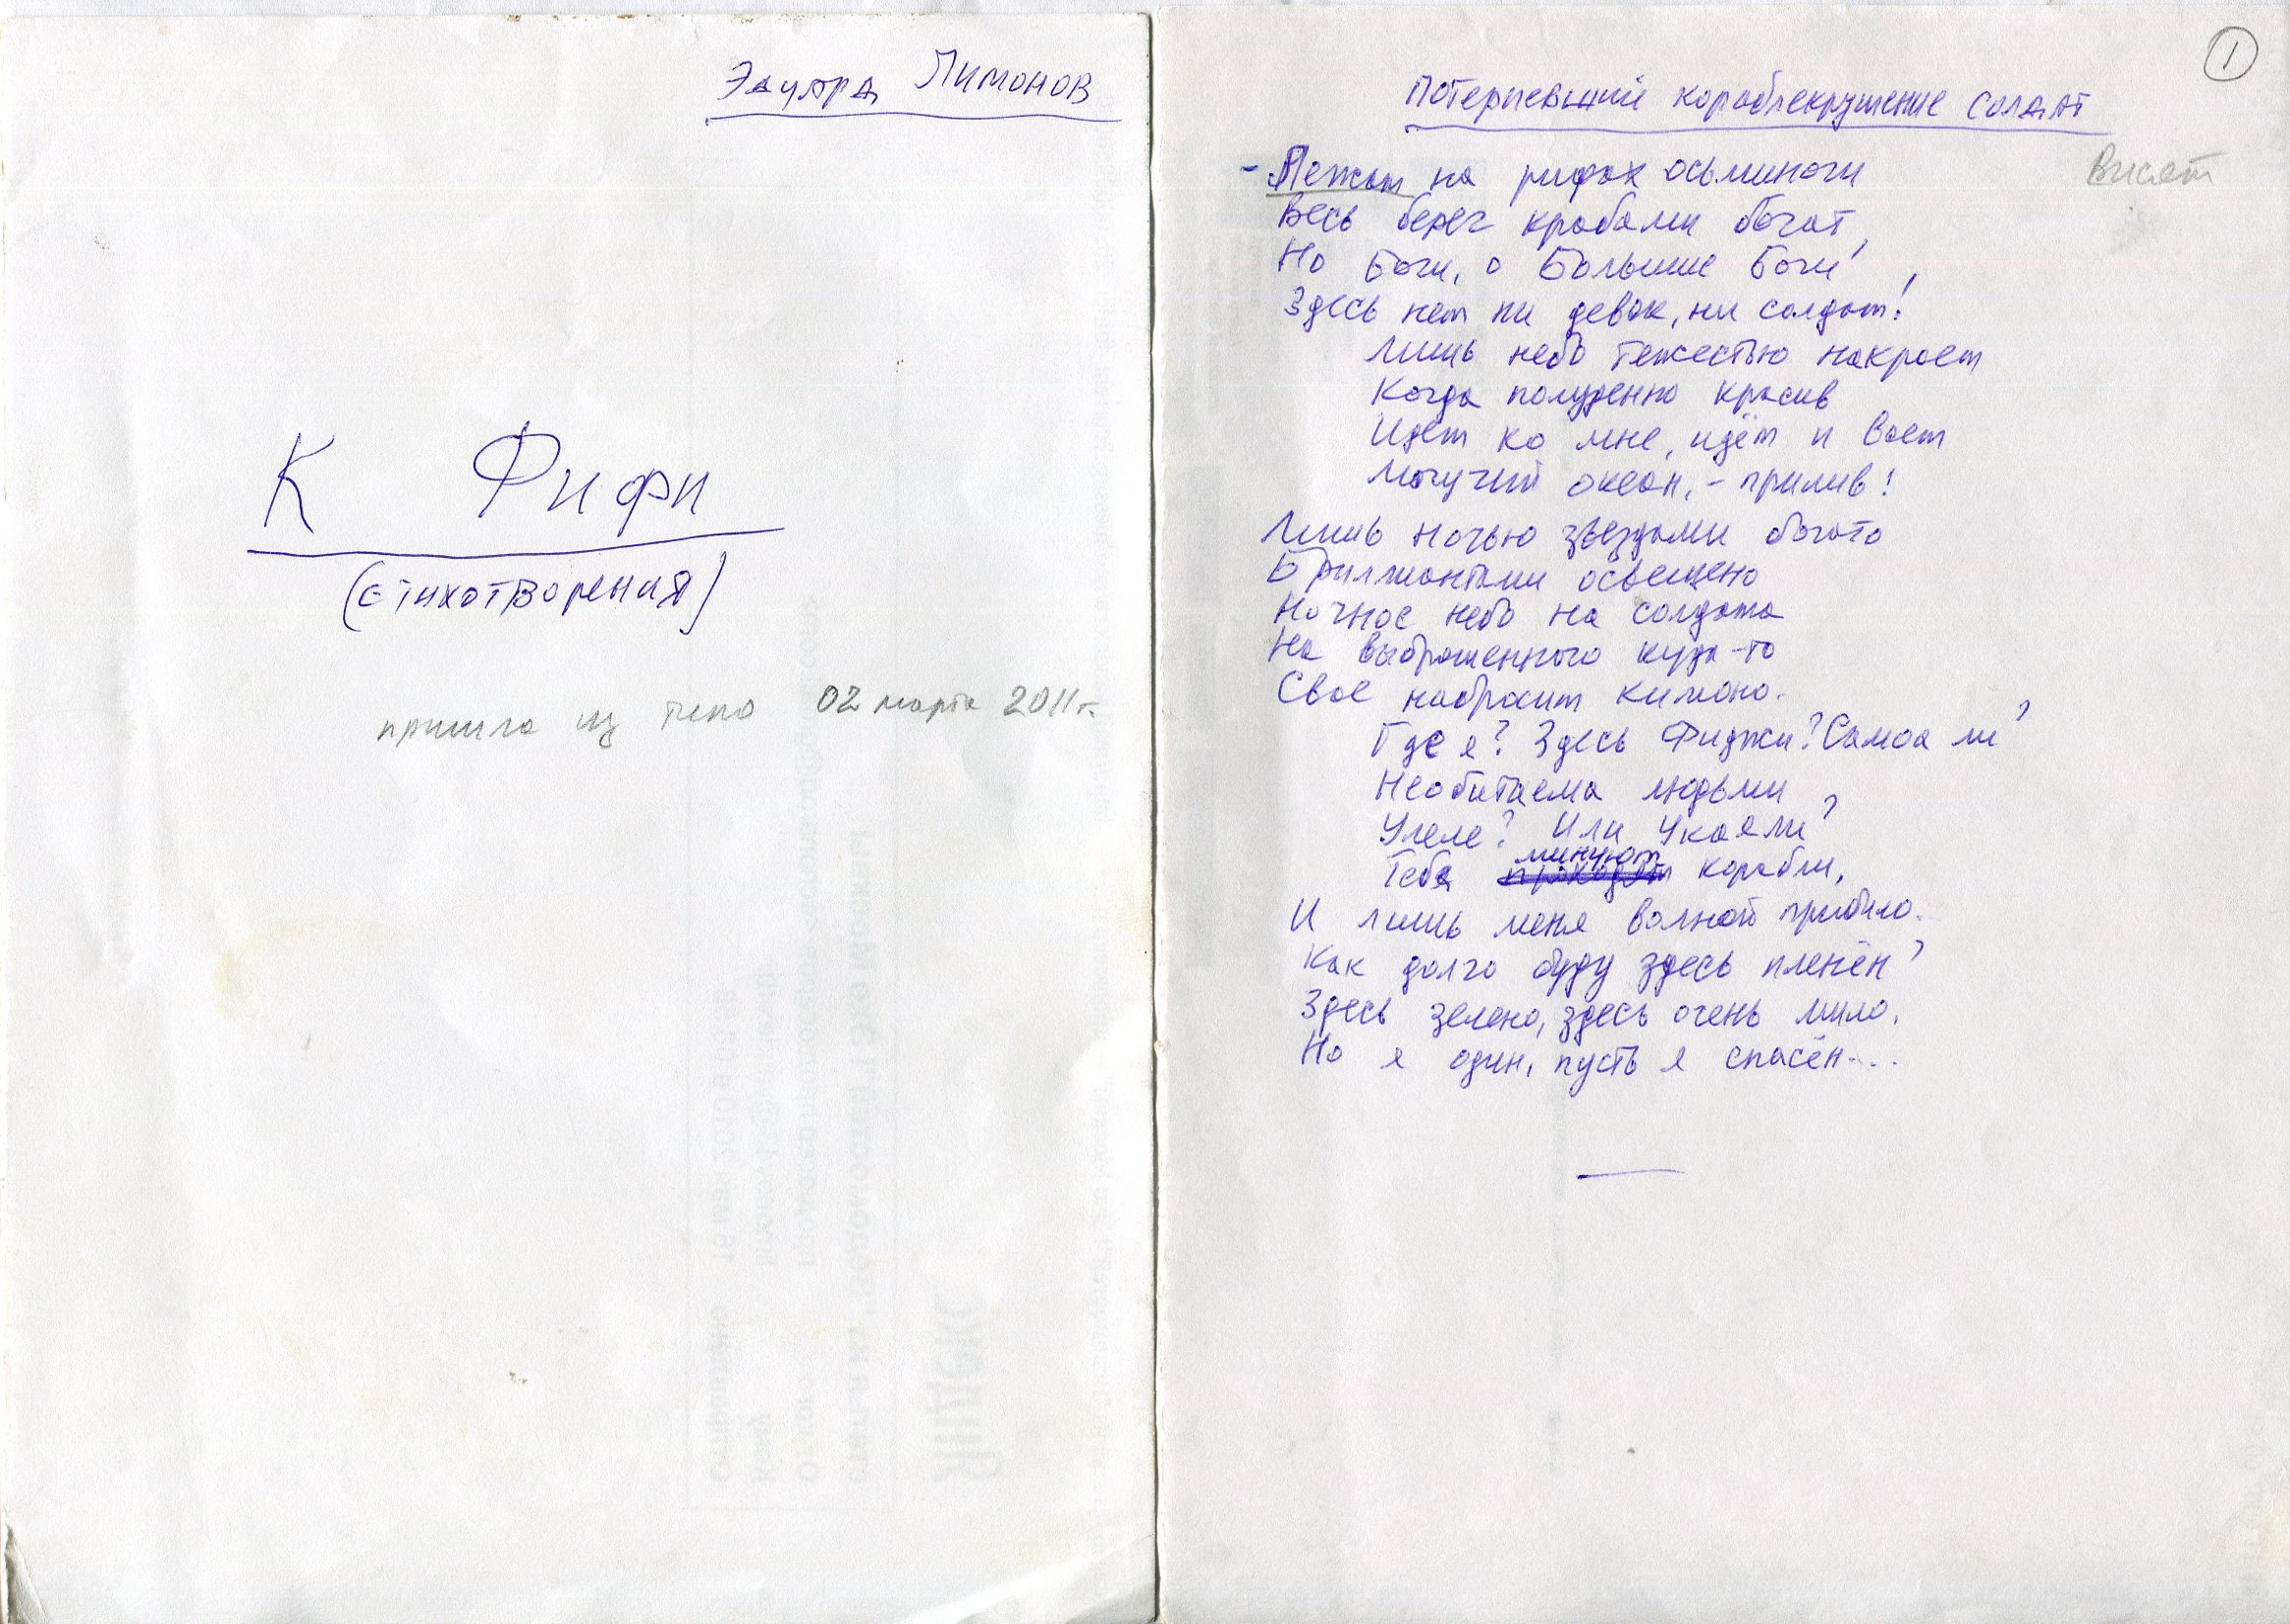 Эдуард Лимонов
К Фифи
(стихотворения)
пришла из типо 02 марта 2011 г.
1
Потерпевший кораблекрушение солдат
Висят
- Лежат на рифах осьминоги
Весь берег крабами богат,
Но Боги, о Большие Боги,
Здесь нет ни девок, ни солдат!
Лишь небо тяжестью накроет
Когда полуденно красив
Идет ко мне, идёт и воет
Могучий океан, - прилив!
Лишь ночью звездами богато
Бриллиантами освещено
Ночное небо на солдата
На выброшенного куда-то
Свое набросит кимоно.
Где я? Здесь Фиджи? Самоа ли?
Необитаема людьми
Улеле? Или Укаяли?
Тебя проходят минуют корабли,
И лишь меня волной прибило.
Как долго буду здесь пленён?
Здесь зелено, здесь очень мило,
Но я один, пусть я спасён...
Яндекс